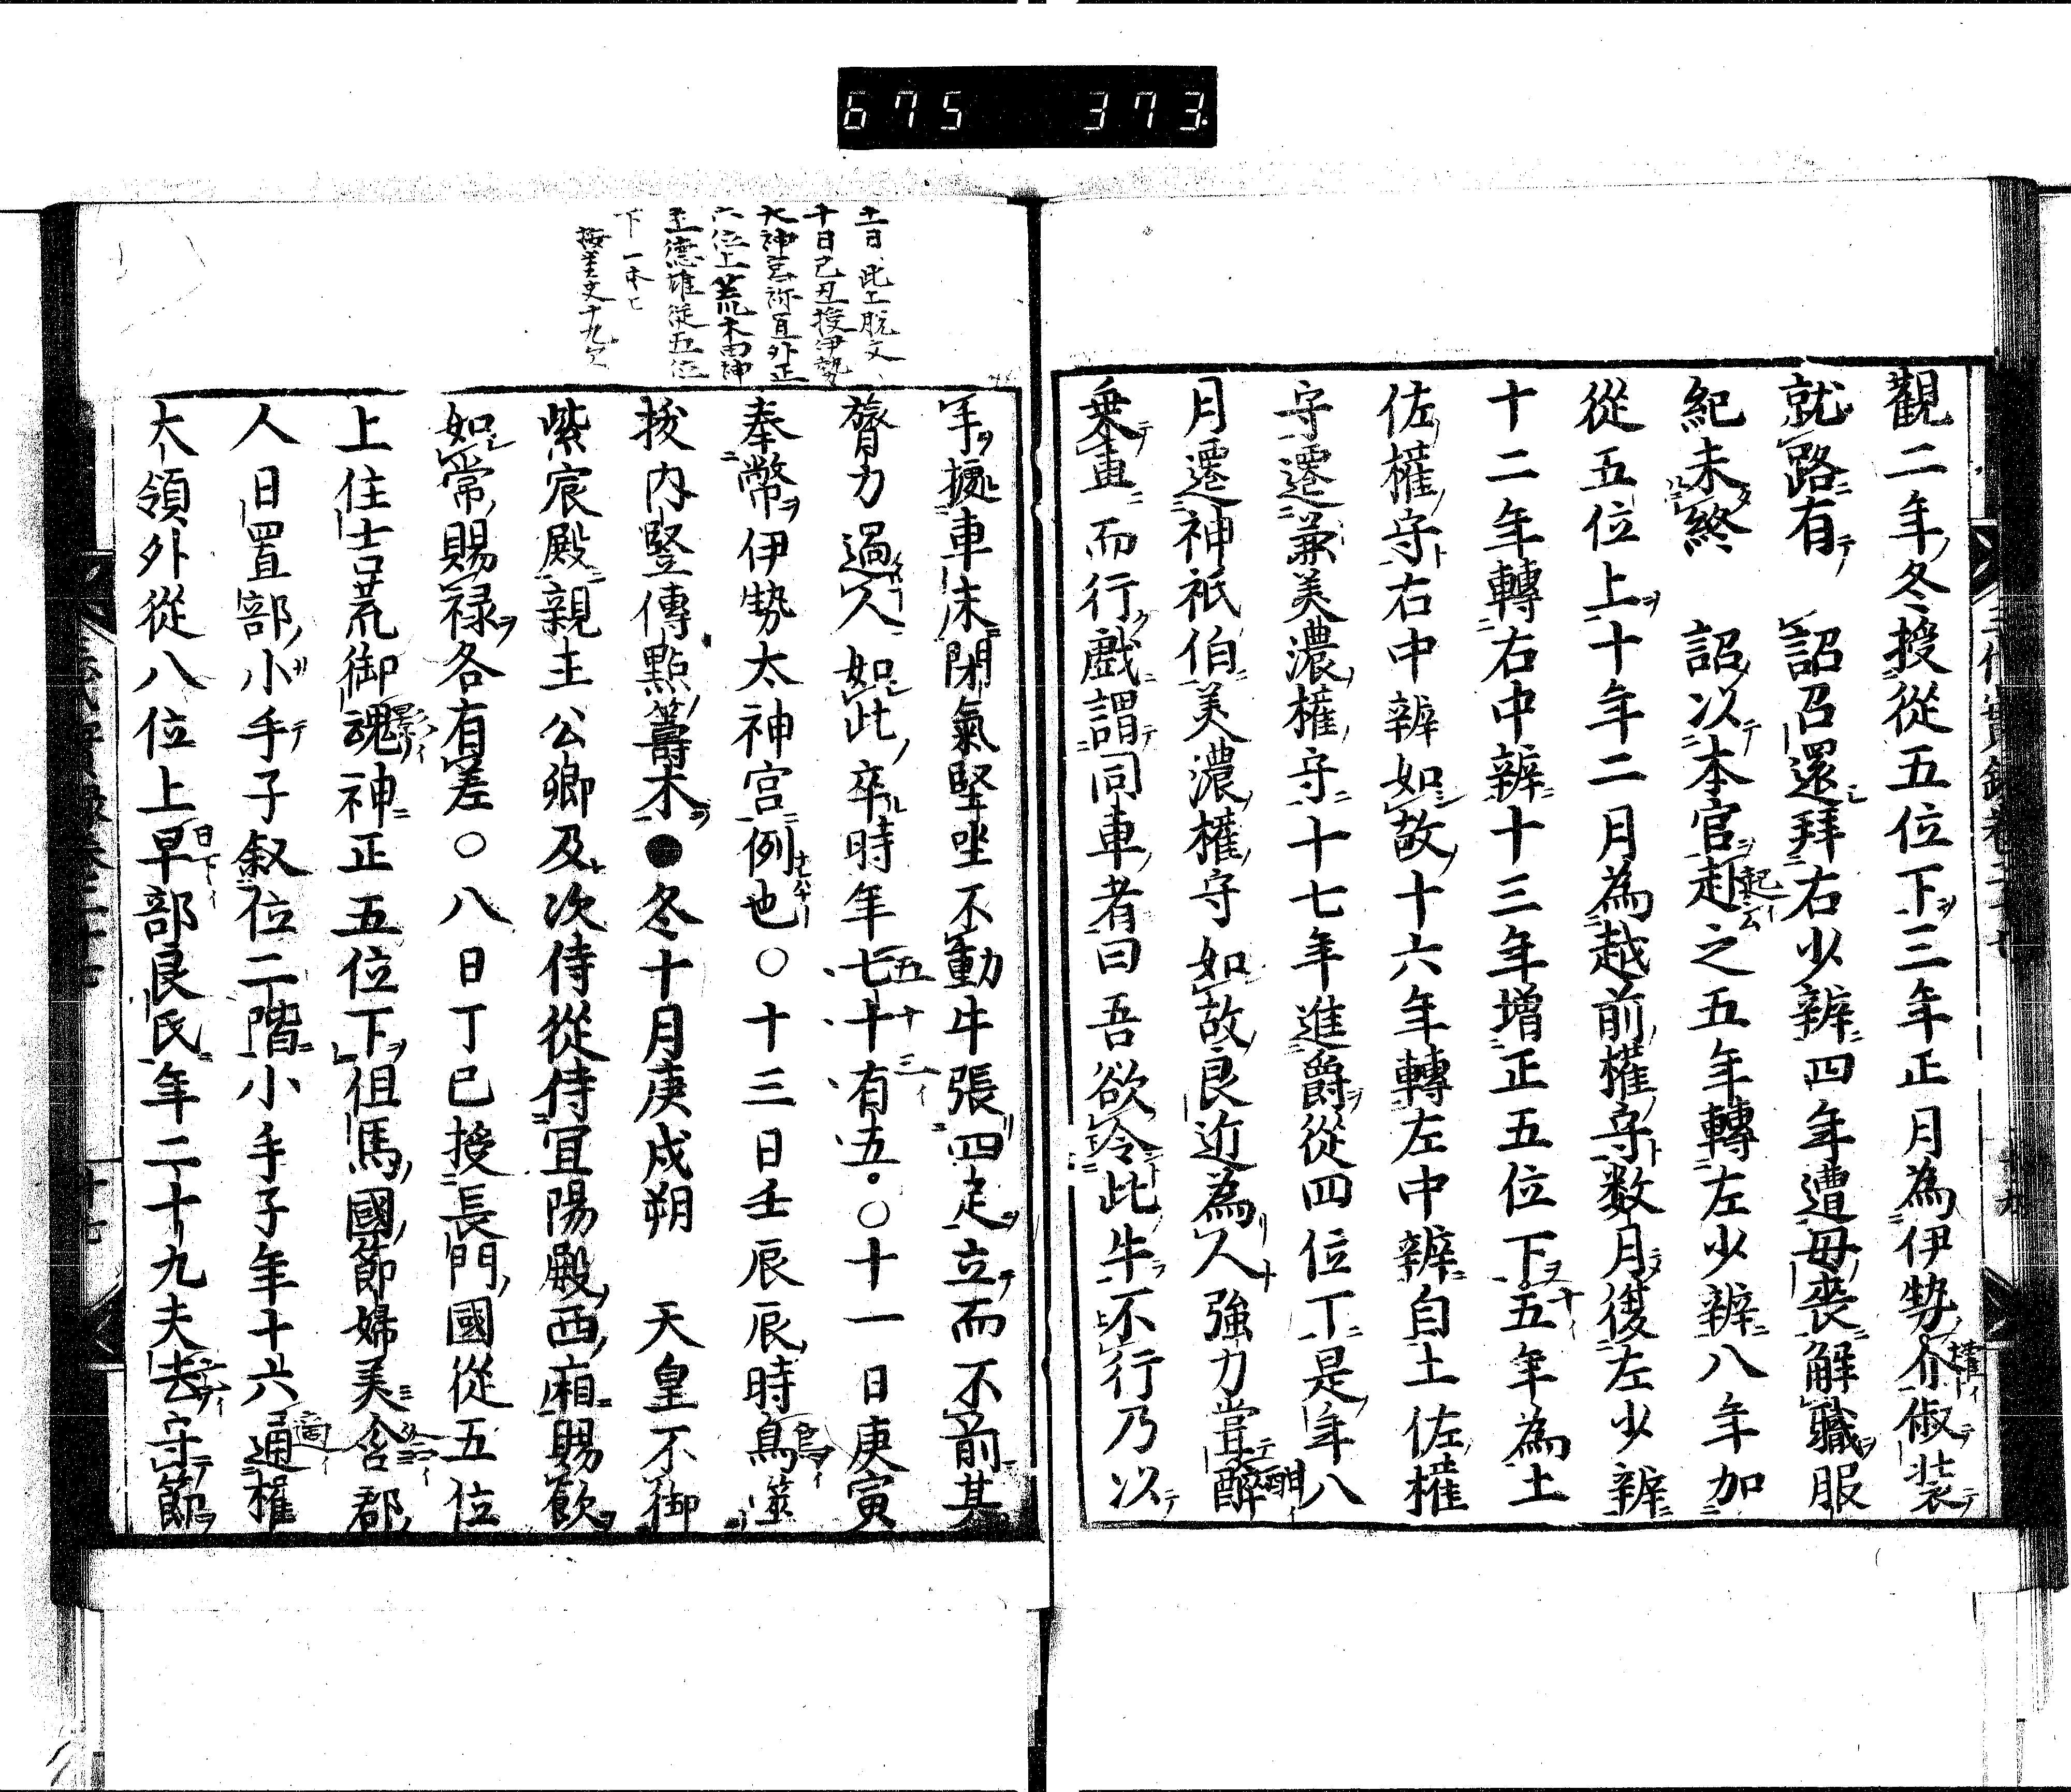 675 373
觀二年冬授從五位下三年正月為伊勢介俶装
就路有 詔召還拜右少辨四年遭母喪解職服
紀未終 詔以本官赴之五年轉左少辨八年加
從五位上十年二月為越前權守数月復左少辨
十二年轉右中辨十三年増正五位下五年為土
佐權守右中辨如故十六年轉左中辨自土佐權
守遷兼美濃權守十七年進爵從四位丁是年八
月遷神祇伯美濃權守如故良近為人強力嘗醉
乗車而行戲謂同車者曰吾欲令此牛不行乃以
手據車床閉氣堅坐不動牛張四足立而不前其
膂力過人如此卒時年七十有五○十一日庚寅
奉幣伊勢太神宮例也○十三日壬辰辰時鳥噬
拔内竪傳點籌木●冬十月庚戌朔 天皇不御
紫宸殿親王公卿及次侍從侍宜陽殿西廂賜飲
如常賜禄各有差○八日丁巳授長門國從五位
上住吉荒御魂神正五位下徂馬國節婦美含郡
人日置部小手子叙位二階小手子年十六適權
大領外從八位上早部良氏年二十九夫去守節
十一日此上脱文
十日己丑授伊勢
大神宮祢宜外正
六位上荒木田神
主德雄從五位
下 一本ヒ